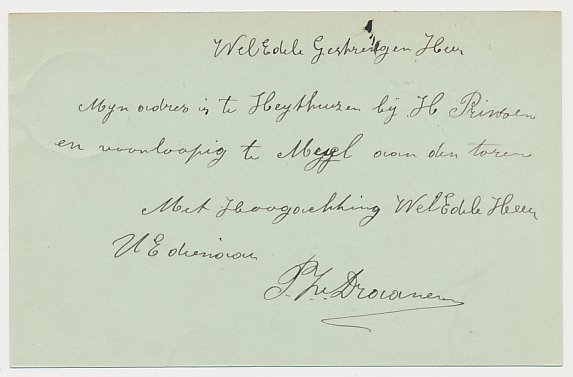 WelEdele Gestrengen Heer
Mijn adres is te Heythuizen bij H Prinsen
en voorloopig te Meyel aan den toren
Met Hoogachting WelEdele Heer
UEdienaar